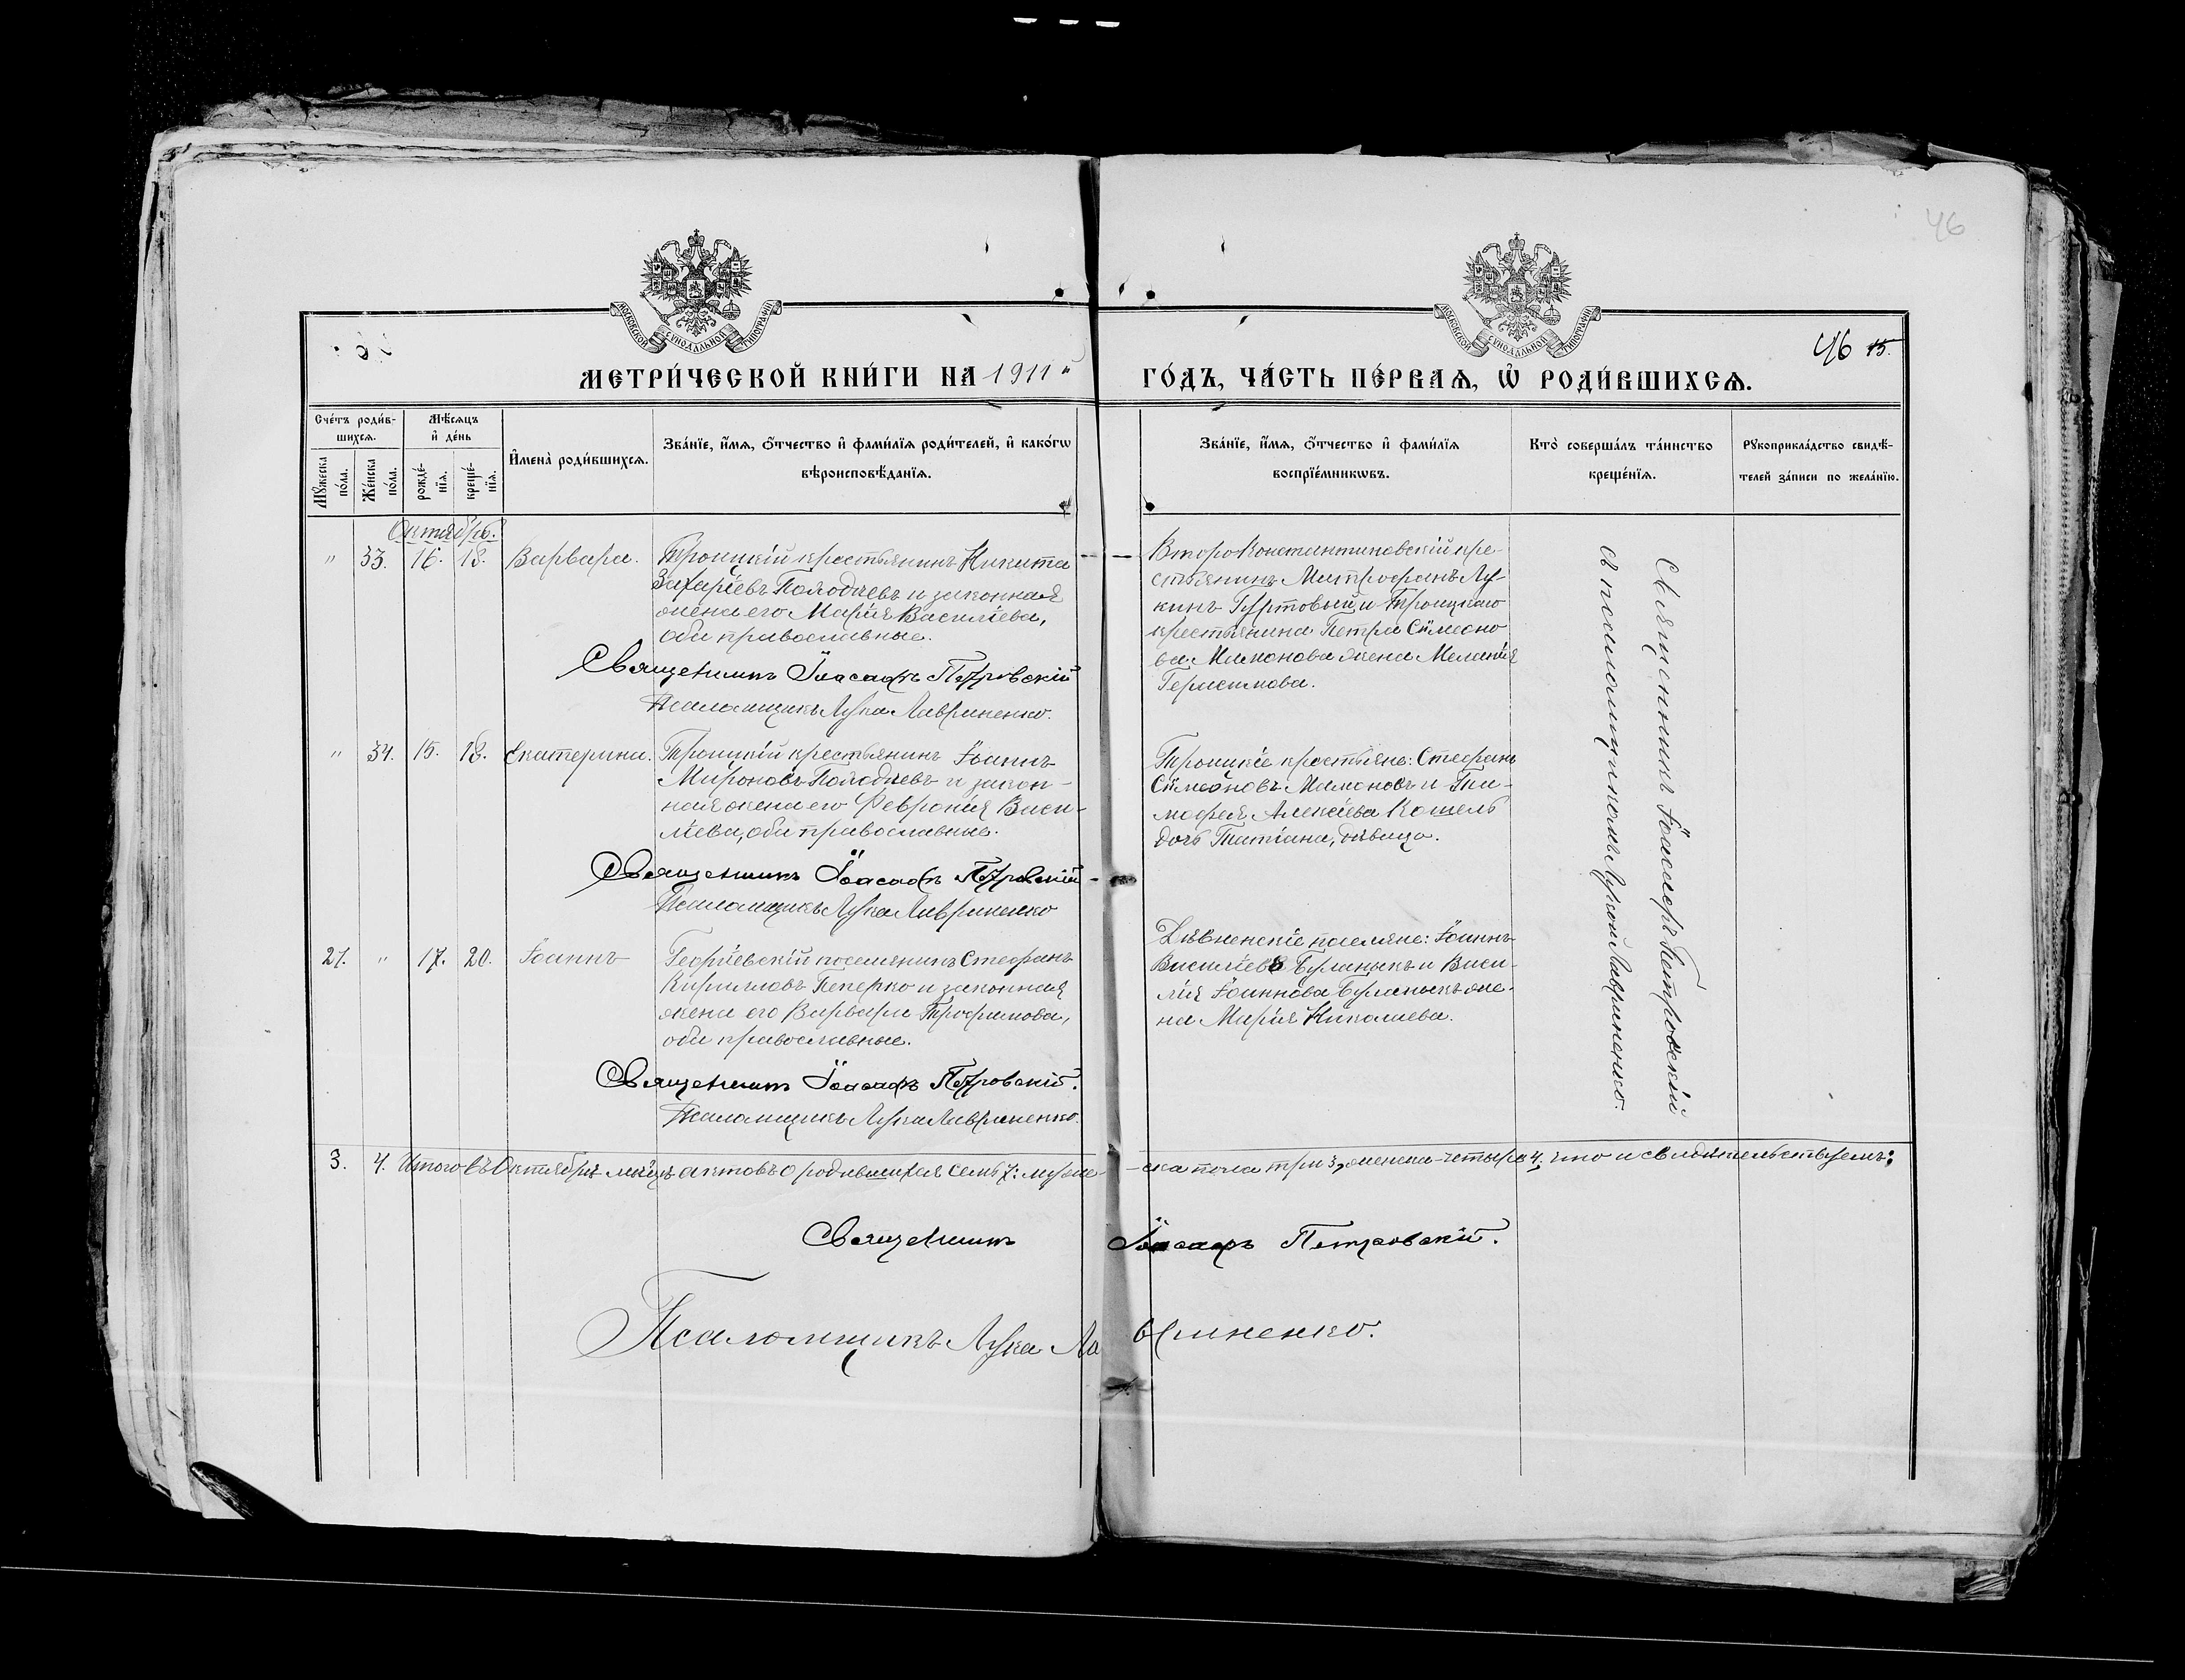 46
МОСКОВСКОЙ СУНОДАЛЬНОЙ ТИПОГРАФІИ
МОСКОВСКОЙ СУНОДАЛЬНОЙ ТИПОГРАФІИ
46 15.
МЕТРИ́ЧЕСКОЙ КНИ́ГИ НА 1911 й
ГО́ДЪ, ЧА́СТЬ ПЕ́РВАѦ, Ѡ҆ РОДИ́ВШИХСѦ.
Сче́тъ роди́в-
шихсѧ.
Мѣ́сѧцъ
и҆ де́нь
Мꙋ́жеска
по́ла.
Же́нска
по́ла.
рожде́-
нїѧ.
креще́-
нїѧ.
И҆мена̀ роди́вшихсѧ.
Зва́нїе, и҆́мѧ, ѻ҆́тчество и҆ фами́лїѧ роди́телей, и҆ како́гѡ
вѣроисповѣ́данїѧ.
Зва́нїе, и҆́мѧ, ѻ҆́тчество и҆ фами́лїѧ
воспрїе́мникѡвъ.
Кто̀ соверша́лъ та́инство
креще́нїѧ.
Рꙋкоприкла́дство свидѣ́-
телей за́писи по жела́нїю.
Октябрь.
" 33. 16. 18. Варвара.
Троицкій крестьянинъ Никита
Захаріевъ Полодчевъ и законная
жена его Марія Василіева,
оба православные.
Священникъ Іоасафъ Петровскій
Псаломщикъ Лука Лавриненко.
Второконстантиновскій кре-
стьянинъ Митрофанъ Лу-
кинъ Гуртовый и Троицкаго
крестьянина Петра Сѵмеоно
ва Мамонова жена Меланія
Герасимова.
" 34. 15. 18. Екатерина.
Троицкій крестьянинъ Іоаннъ
Мироновъ Полодчевъ и закон-
ная жена его Февронія Васи-
ліева, оба православные.
Священникъ Іоасафъ Петровскій
Псаломщикъ Лука Лавриненко
Троицкіе крестьяне: Стефанъ
Сѵмеоновъ Мамоновъ и Ти-
мофея Алексіева Кошель
дочь Татіана, дѣвица.
21. " 17. 20. Іоаннъ
Георгіевскій поселянинъ Стефанъ
Кирилловъ Пепежко и законная
жена его Варвара Трофимова,
оба православные.
Священникъ Іоасафъ Петровскій.
Псаломщикъ Лука Лавриненко.
Дивненскіе поселяне: Іоаннъ
Василіевъ Буланыкъ и Васи-
лія Іоаннова Буланыкъ же-
на Марія Николаева.
Священникъ Іоасафъ Петровскій
съ псаломщикомъ Лукой Лавриненко.
3. 4. Итого въ Октябрѣ мѣсяцѣ актовъ о родившихся семь 7: муже-
-ска пола три 3, женска-четыре 4, что и свидѣтельствуемъ:
Священникъ Іоасафъ Петровскій.
Псаломщикъ Лука Лавриненко.